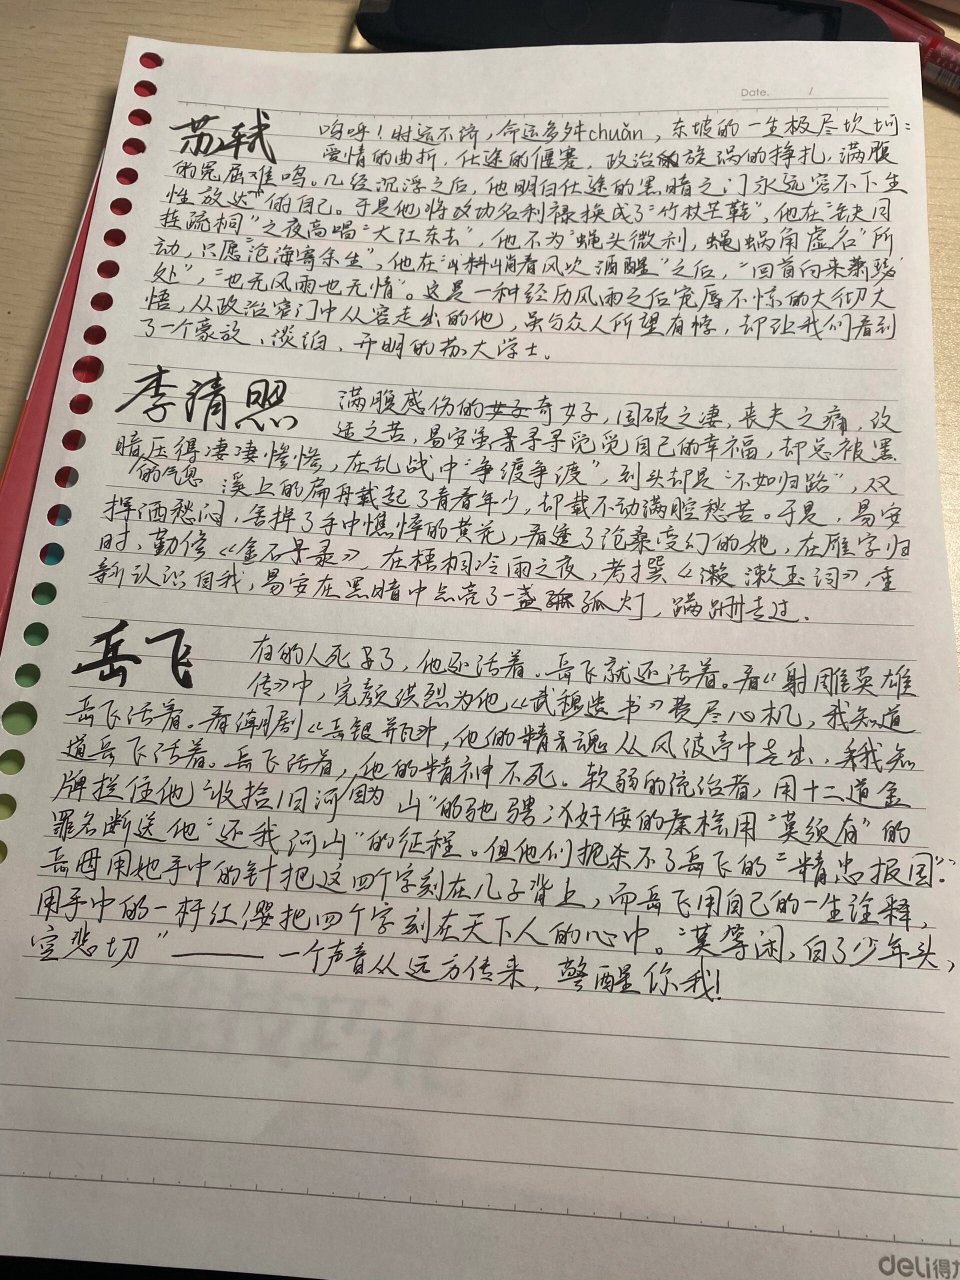 Date. /
苏轼
呜呼!时运不济,命运多舛chuǎn,东坡的一生极尽坎坷:
爱情的曲折,仕途的偃蹇,政治的旋涡的挣扎,满腹
的冤屈难鸣。几经沉浮之后,他明白仕途的黑暗之门永远容不下生
性放达"的自己。于是他将政功名利禄换成了"竹杖芒鞋",他在"缺月
挂疏桐"之夜高唱"大江东去",他不为"蝇头微利,蝇蜗角虚名"所
动,只愿"沧海寄余生",他在"料峭春风吹酒醒"之后,"回首向来萧瑟
处","也无风雨也无情"。这是一种经历风雨之后宠辱不惊的大彻大
悟,从政治窄门中从容走出的他,虽与众人所望有悖,却让我们看到
了一个豪放、淡泊、开明的苏大学士。
李清照
满腹感伤的女子奇女子,国破之凄,丧夫之痛,改
适之苦,易安虽寻寻觅觅自己的幸福,却总被黑
暗压得凄凄惨惨,在乱战中"争渡争渡",到头却是"不如归路",双
的气息
溪上的扁舟载起了青春年少,却载不动满腔愁苦。于是,易安
挥洒愁闷,舍掉了手中憔悴的黄花,看透了沧桑变幻的她,在雁字归
时,勤修《金石录》,在梧桐冷雨之夜,考撰《漱漱玉词》,重
新认识自我,易安在黑暗中点亮了一盏孤灯,蹒跚走过.
岳飞
有的人死了,他还活着。岳飞就还活着。看《射雕英雄
传》中,完颜洪烈为他《武穆遗书》费尽心机,我知道
岳飞活着。看潮剧《岳银瓶》中,他的精魂从风波亭中走出,我知
道岳飞活着。岳飞活着,他的精神不死。软弱的统治者,用十二道金
牌拦住他"收拾旧河山"的驰骋;奸佞的秦桧用"莫须有"的
罪名断送他"还我河山"的征程。但他们扼杀不了岳飞的"精忠报国"。
岳母用她手中的针把这四个字刻在儿子背上,而岳飞用自己的一生诠释,
用手中的一杆红缨把四个字刻在天下人的心中。"莫等闲,白了少年头,
空悲切"——一个声音从远方传来,警醒你我!
deli得力